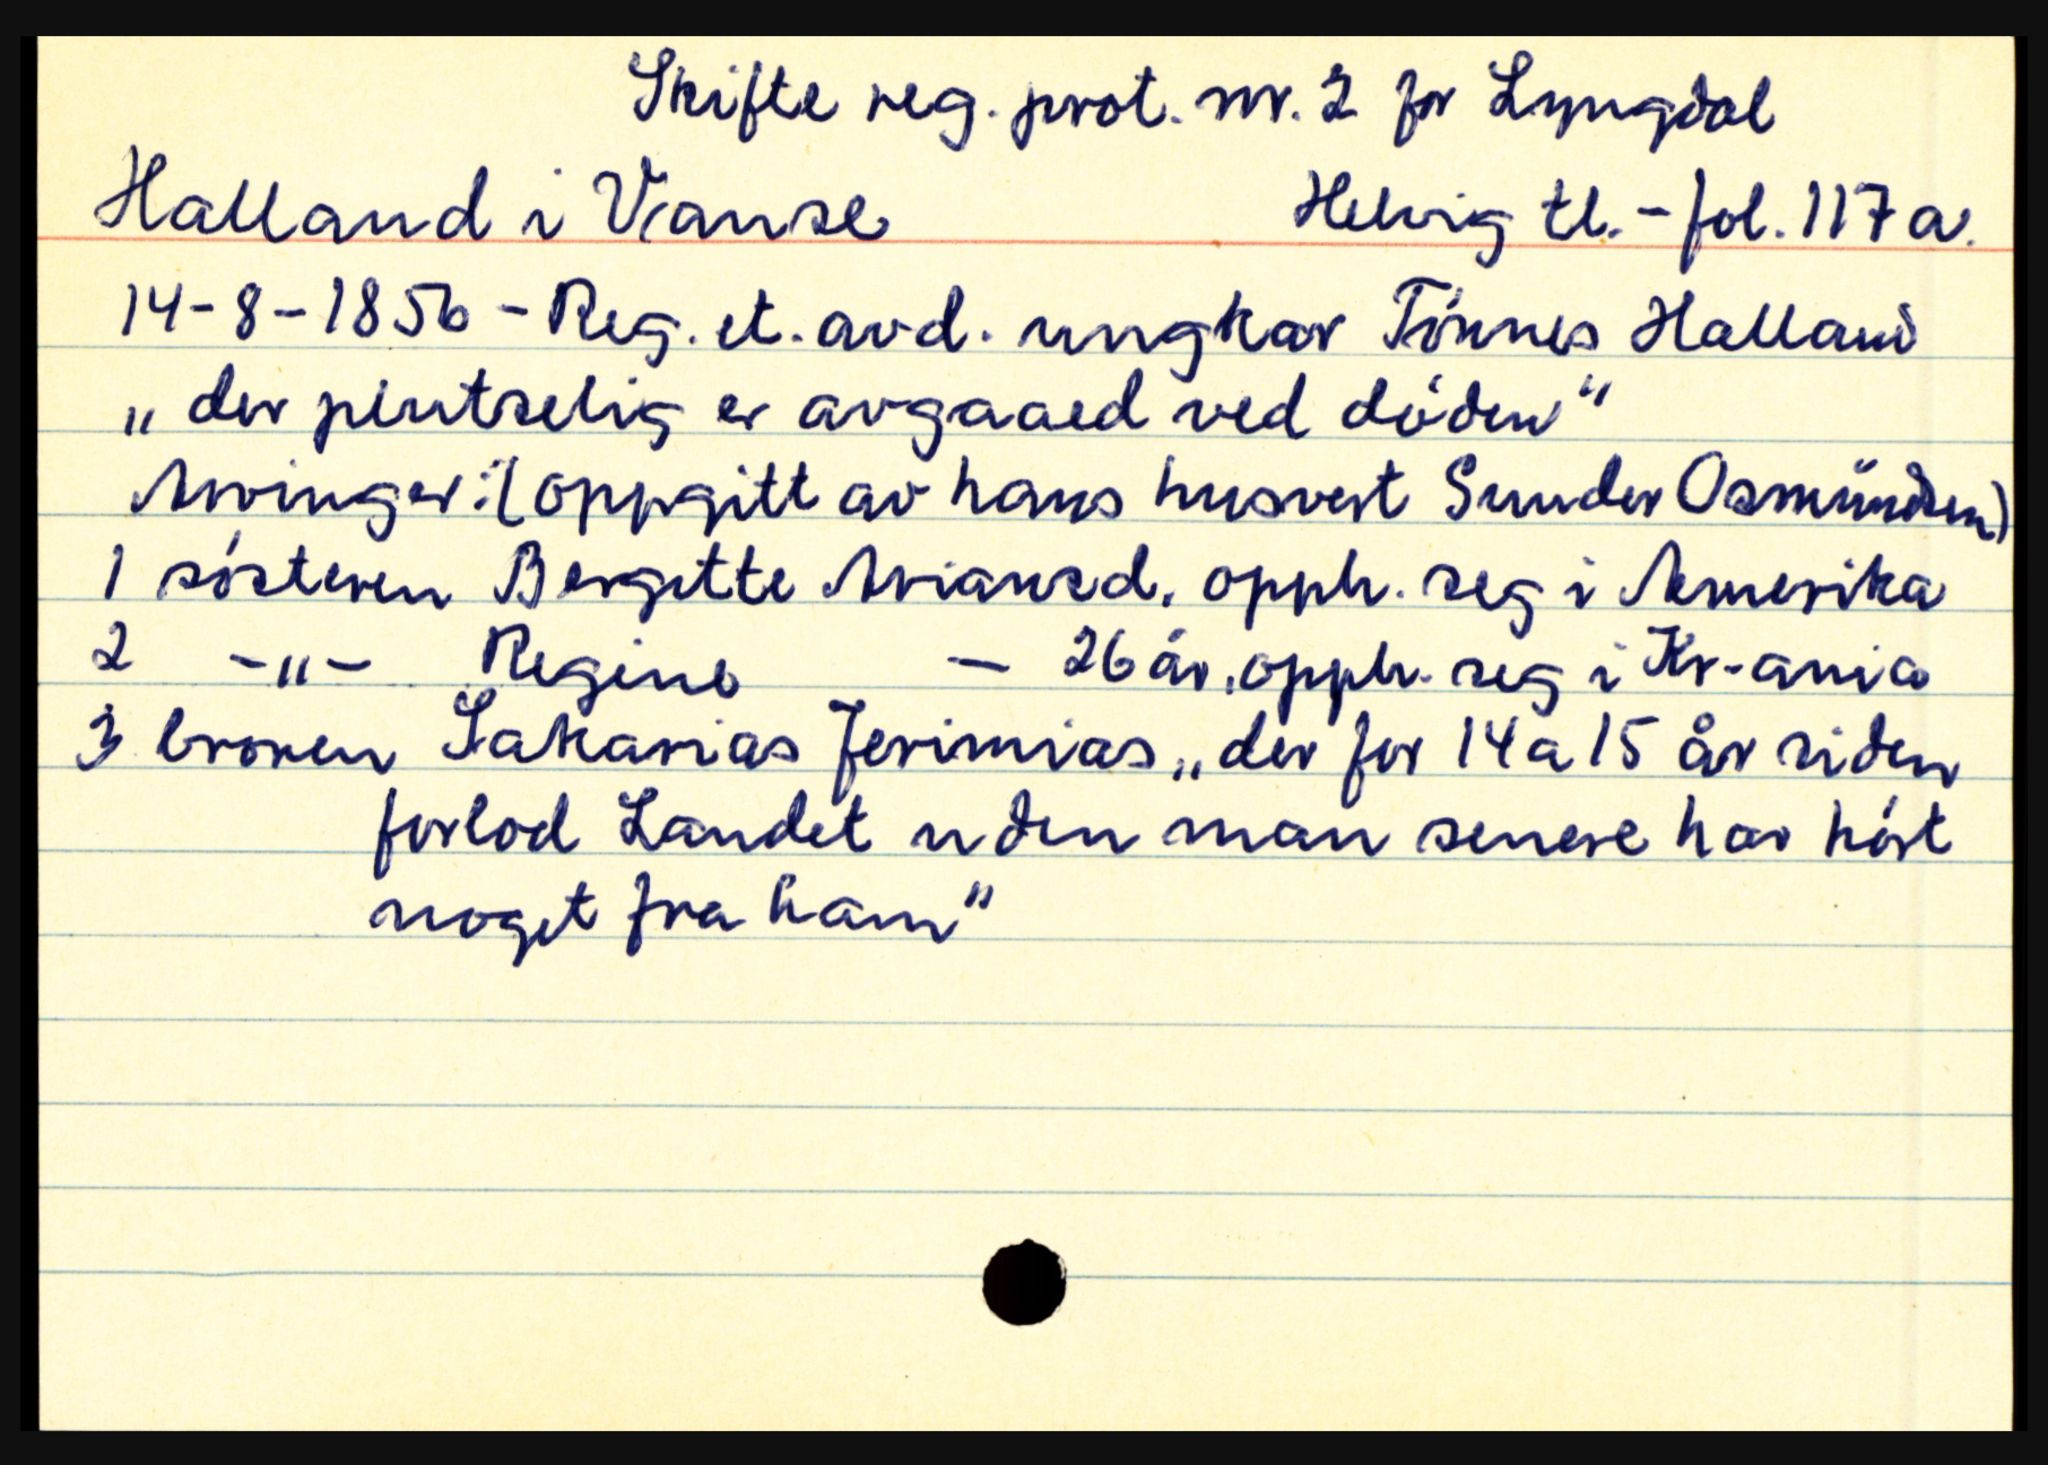 Skifte reg. prot. nr. 2 for Lyngdal
Halland i Vanse Helvig tl. - fol. 117a.
14-8-1856 - Reg. et. avd. ungkar Tönnes Halland
„der plutselig er avgaaed ved döden"
Arvinger: (oppgitt av hans husvert Sunder Osmundsen)
1 sösteren Bergitte Ariansd. opph. seg i Amerika
2 -"- Regine - 26 år, opph. seg i Kr-ania
3 broren Sakarias Jerimias „der for 14 a 15 år siden
forlod Landet uden man senere har hört
noget fra ham"